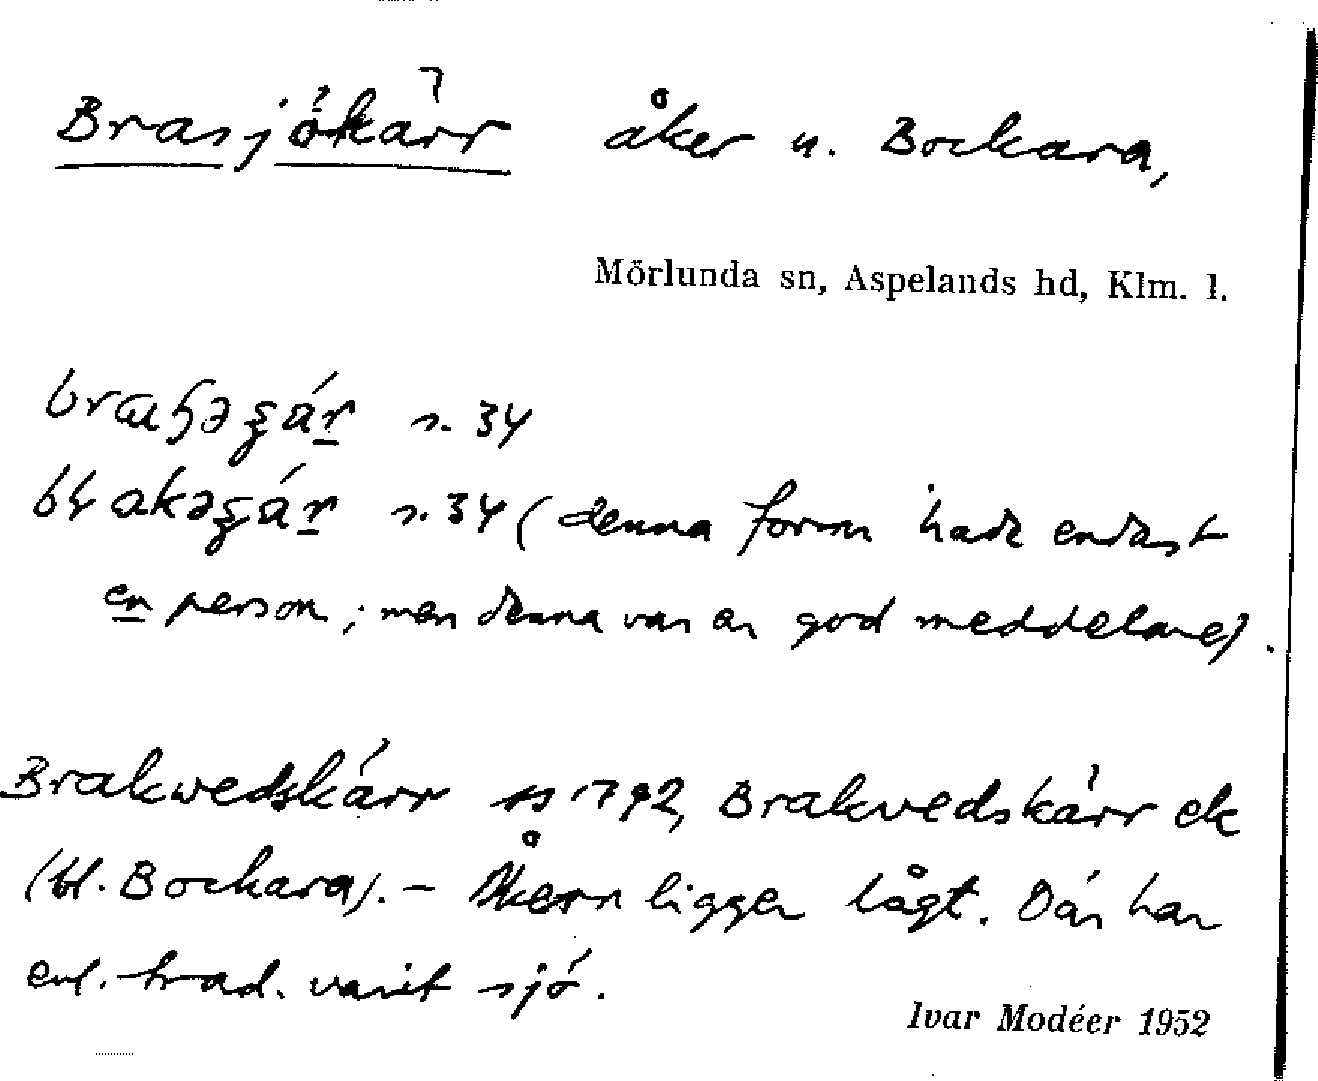 Brasjökärr åker u. Bockara,
Mörlunda sn, Aspelands hd, Klm. l.
s. 34
s. 34 (denna form hade endast
en person; men denna var en god meddelare).
Brakwedskärr 1792, Brakvedskärr ek
(bl. Bockara). – Åkern ligger lågt. Där har
enl. trad. varit sjö.
Ivar Modéer 1952